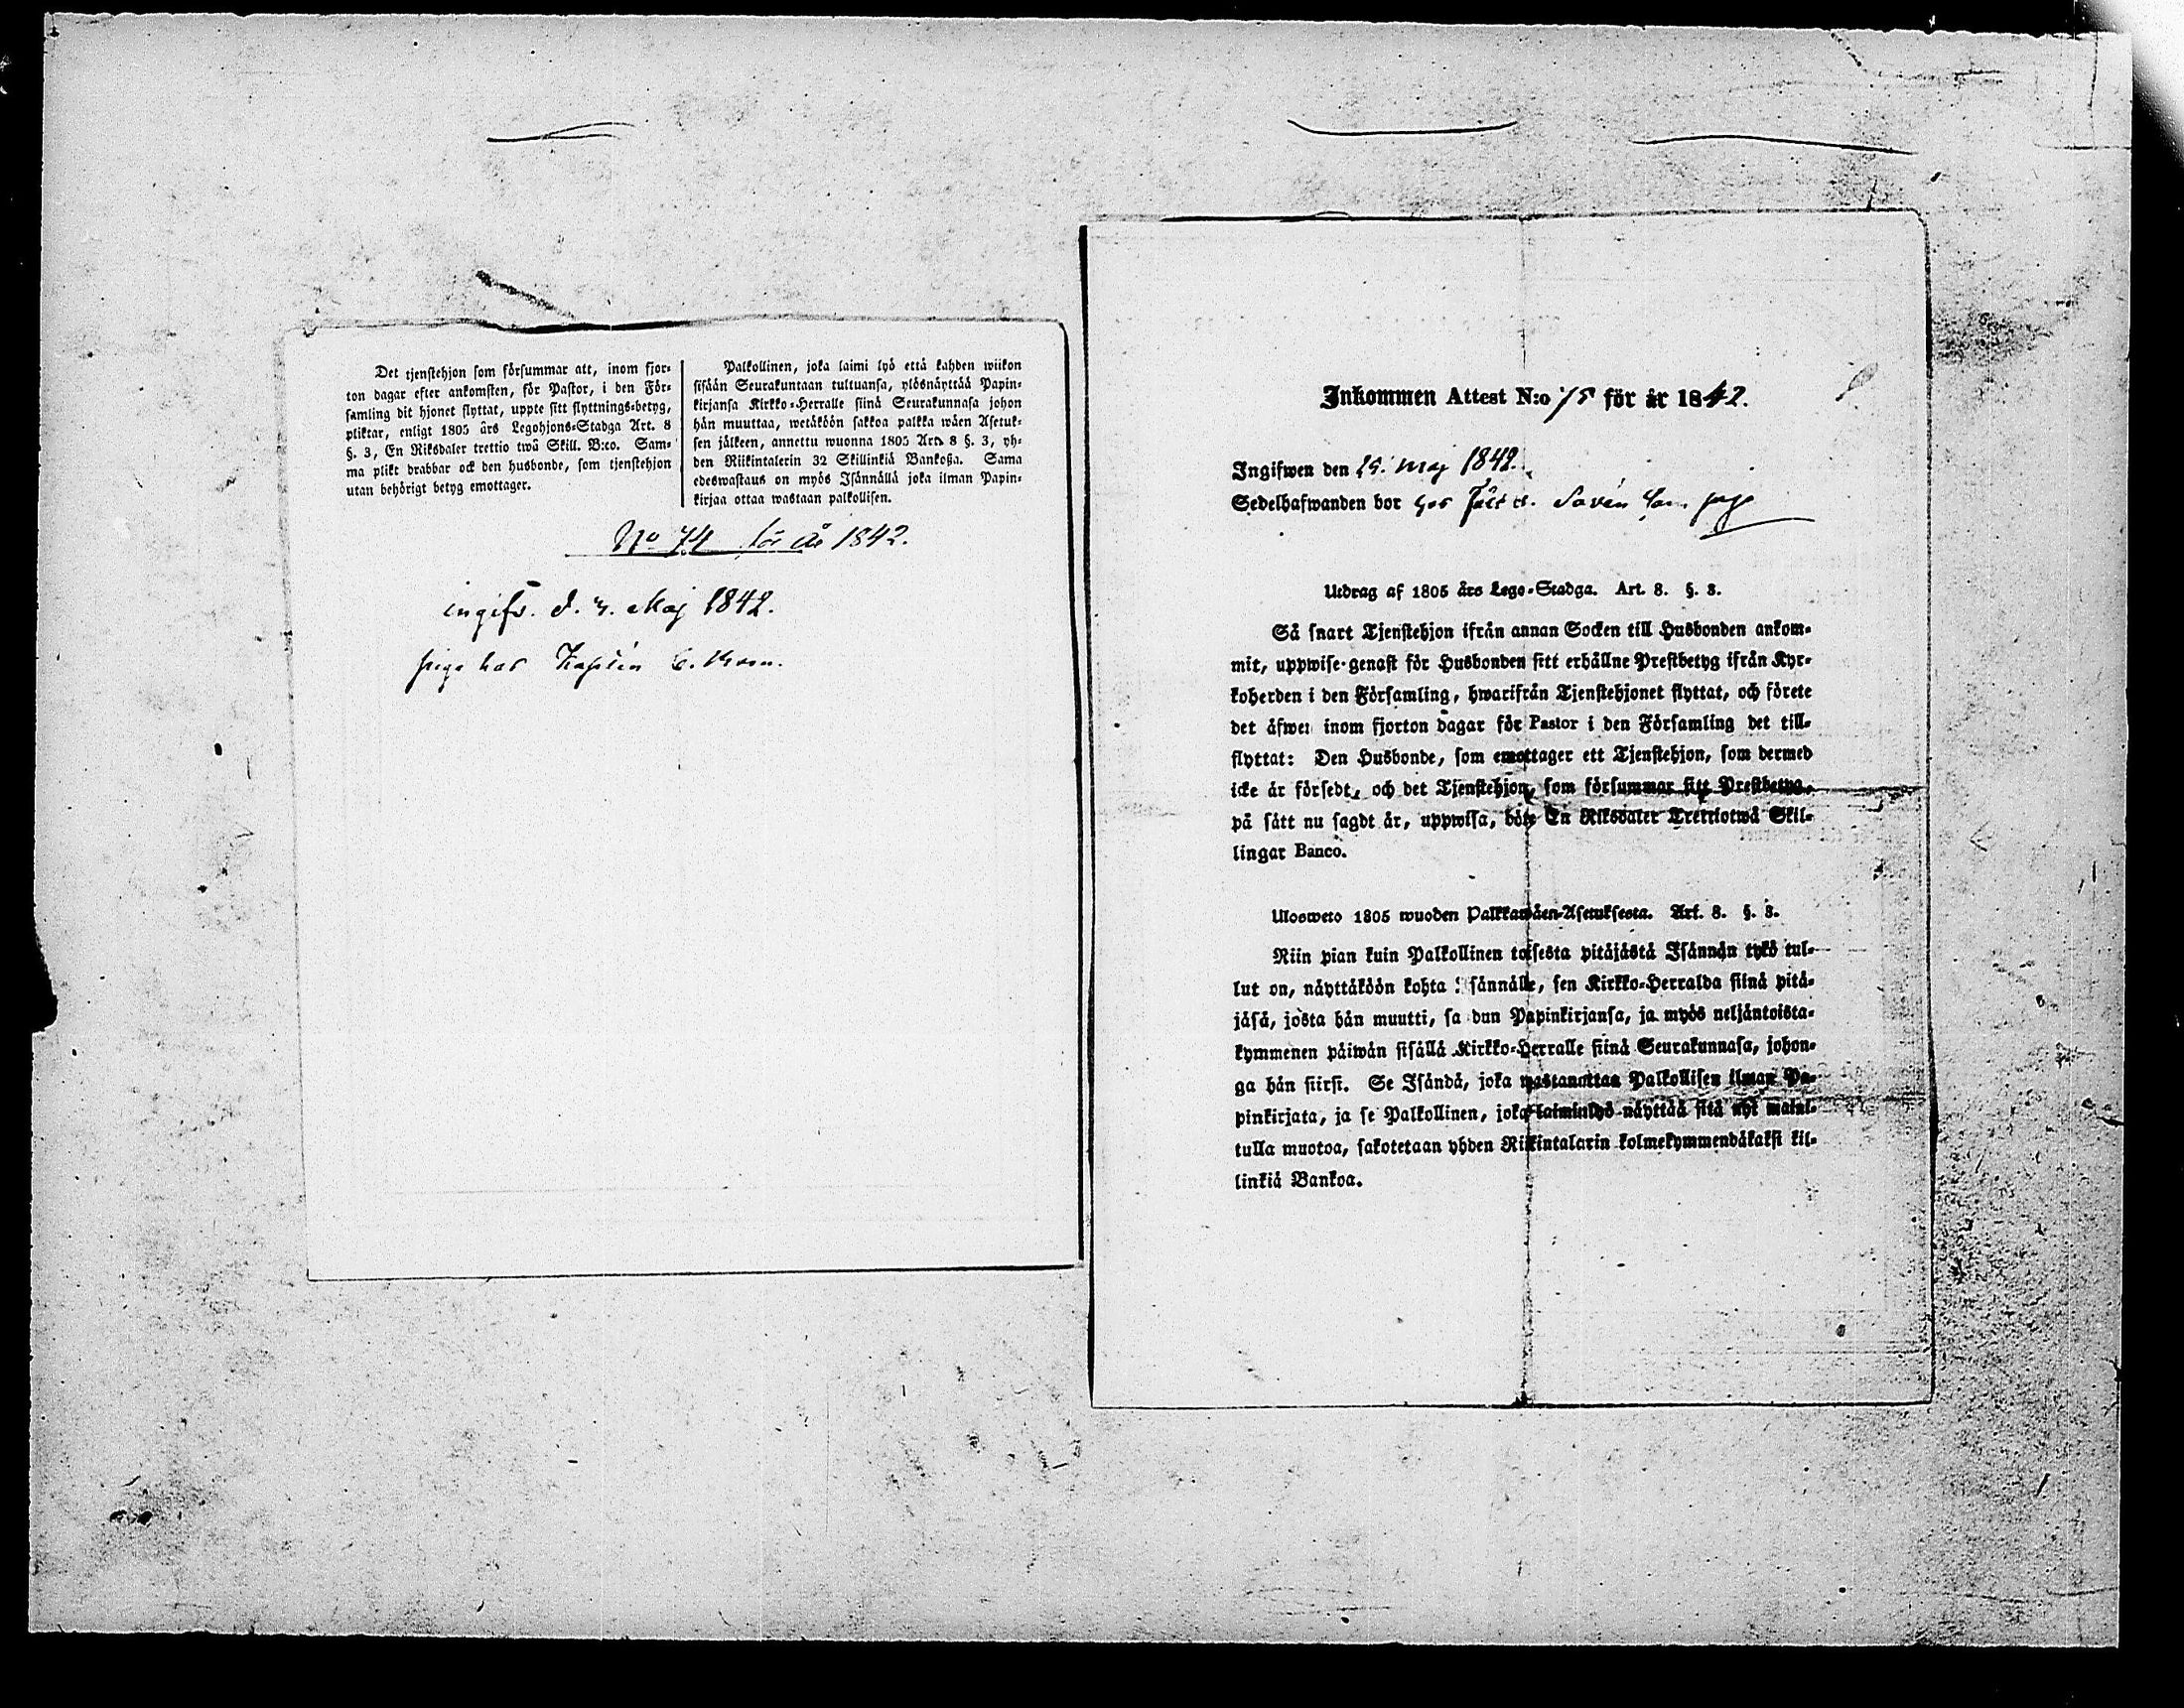 Det tjenstehjon som försummar att, inom fjor-
ton dagar efter ankomsten, för Pastor, i den För-
samling dit hjonet flyttat, uppte sitt flyttnings-betyg,
pliktar, enligt 1805 års Legohjons-Stadga Art. 8
§. 3, En Riksdaler trettio två Skill. B:co. Sam-
ma plikt drabbar ock den husbonde, som tjenstehjon
utan behörigt betyg emottager.
Palkollinen, joka laimi lyö että kahden wiikon
sisään Seurakuntaan tultuansa, ylösnäyttää Papin-
kirjansa Kirkko-Herralle siinä Seurakunnasa johon
hän muuttaa, wetäköön sakkoa palkka wäen Asetuk-
sen jälkeen, annettu wuonna 1805 Art. 8 §. 3, yh-
den Riikintalerin 32 Skillinkiä Bankoßa. Sama
edeswastaus on myös Isännällä joka ilman Papin-
kirjaa ottaa wastaan palkollisen.
No 74 för år 1842.
ingifv. d. 3. Maj 1842.
piga hos
Inkommen Attest N:o 75 för år 1842.
Ingifwen den 15. Maj 1842.
Sedelhafwanden bor hos
Utdrag af 1805 års Lego-Stadga. Art. 8. §. 3.
Så snart Tjenstehjon ifrån annan Socken till Husbonden ankom-
mit, uppwise genast för Husbonden sitt erhållne Prestbetyg ifrån Kyr-
koherden i den Församling, hwarifrån Tjenstehjonet flyttat, och förete
det äfwen inom fjorton dagar för Pastor i den Församling det till-
flyttat: Den Husbonde, som emottager ett Tjenstehjon, som dermed
icke är försedt, och det Tjenstehjon, som försummar sitt Prestbetyg,
på sätt nu sagdt är, uppwisa, böte En Riksdaler Trettiotwå Skil-
lingar Banco.
Ulosweto 1805 wuoden Palkkawäen-Asetuksesta. Art. 8. §. 3.
Niin pian kuin Palkollinen toisesta pitäjästä Isännän tykö tul-
lut on, näyttäköön kohta Isännälle, sen Kirkko-Herralda siinä pitä-
jäsä, josta hän muutti, sa dun Papinkirjansa, ja myös neljäntoista-
kymmenen päiwän sisällä Kirkko-Herralle siinä Seurakunnasa, johon-
ga hän siirsi. Se Isändä, joka wastanottaa Palkollisen ilman Pa-
pinkirjata, ja se Palkollinen, joka laiminlyö näyttää sitä nyt mainit-
tulla muotoa, sakotetaan yhden Riikintalarin kolmekymmendäkaksi kil-
linkiä Bankoa.